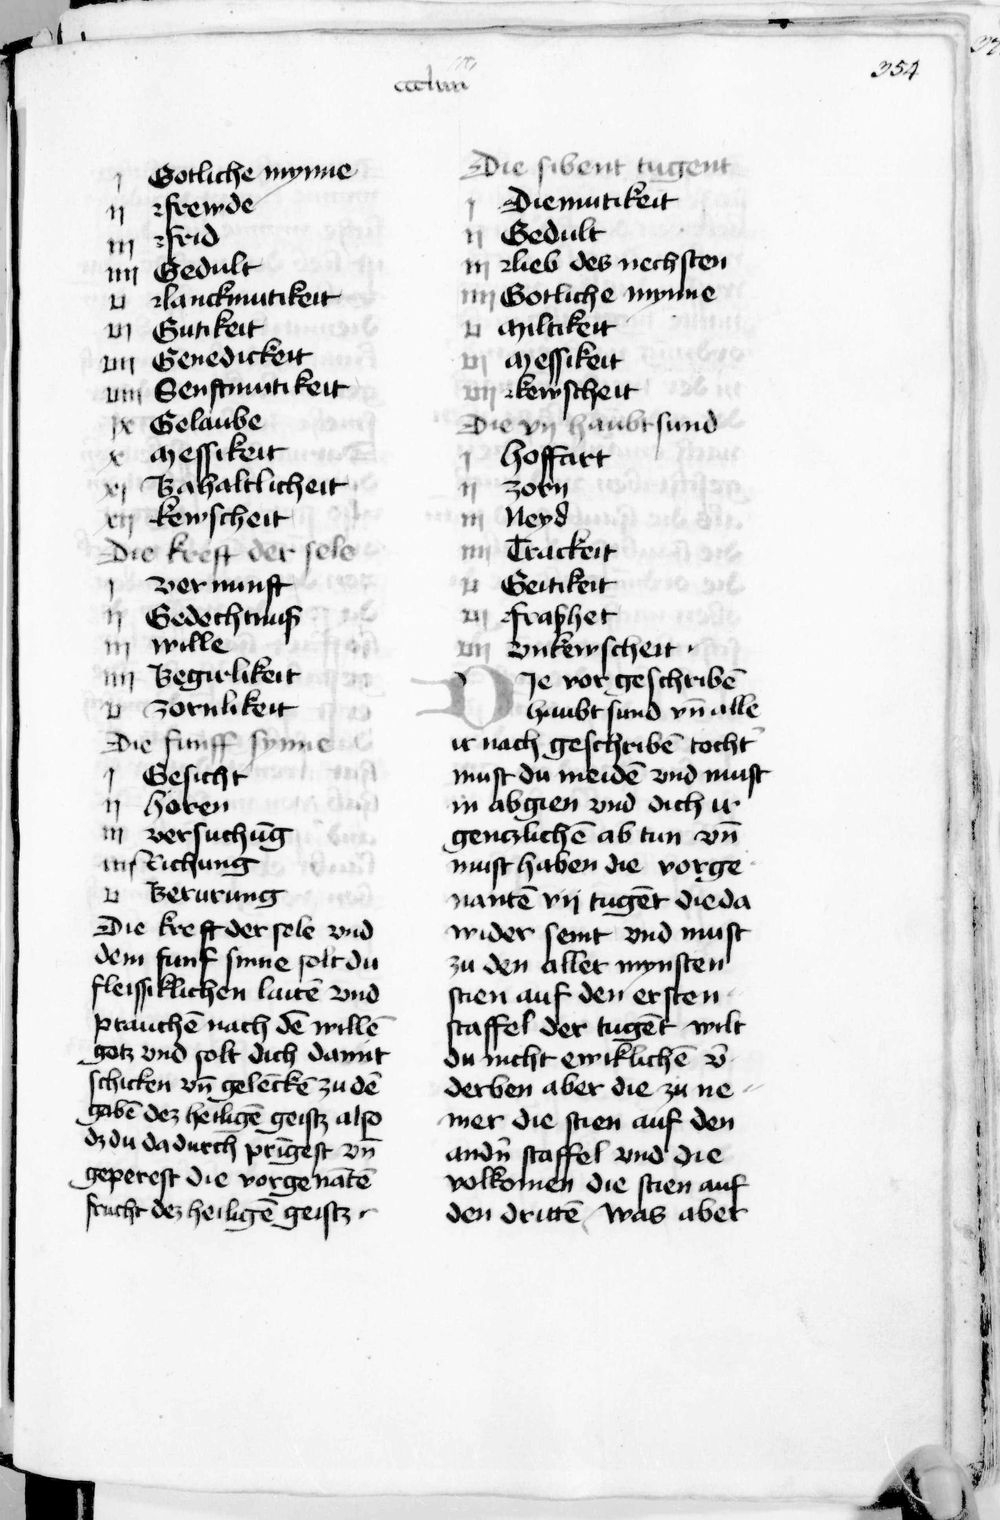 354
ccclviii
j Gotliche mynne
ij frewde
iij frid
iiij Gedult
v lanckmutikeit
vi Gutikeit
vij Genedickeit
viij Senftmutikeit
ix Gelaube
x Messikeit
xi Bahaltlicheit
xij kewscheit
Die kreft der sele
j vernunft
ij Gedechtnuß
iij wille
iiij Begirlikeit
v Zornlikeit
Die funff synne
j Gesicht
ij horen
iij versuchūg
iiij Richung
v Berurung
Die kreft der sele vnd
dem funf sinne solt du
fleissiklichen lauttē vnd
prauchē nach dē willē
gotz vnd solt dich damit
schicken vn̄ gelēckē zu dē
gabē dez heiligē geistz also
dz du da durch prīgest vn̄
geperest die vorgenātē
frucht dez heiligē geistz
Die sibent tugent
j Diemutikeit
ij Gedult
iij lieb des nechsten
iiij Gotliche mynne
v Miltikeit
vi Messikeit
vij kewscheit
Die vij haubt sund
j hoffart
ij zorn
iij Neyd
iiij Trackeit
v Geitikeit
vi fraßhet
vij vnkewscheit
Die vor geschribē
haubt sund vn̄ alle
ir nach geschribē tocht̄
must du meidē vnd must
in abgien vnd dich ir
genczlichē ab tun vn̄
must haben die vorge
nantē vij tugēt die da
wider seint vnd must
zu den aller mynsten
stien auf den ersten
staffel der tugēt wilt
du nicht ewiklichē v̄
derben aber die zu ne
mer die stien auf den
andn̄ staffel vnd die
volkomen die stien auf
den drittē was aber